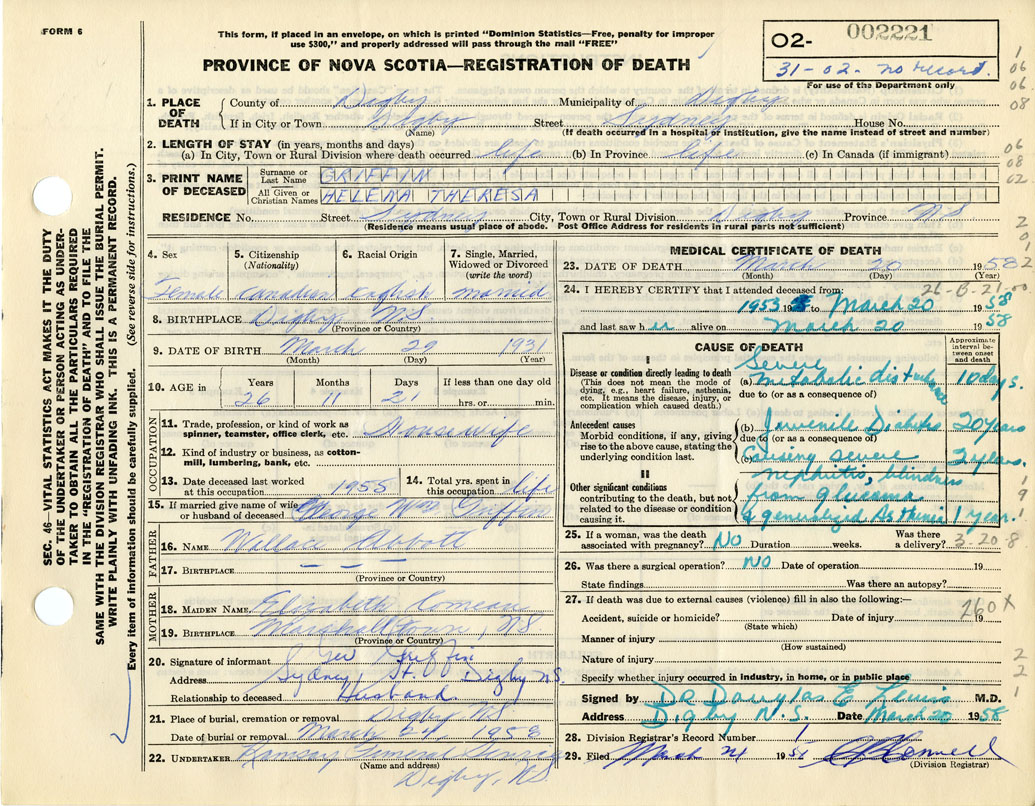 FORM 6
This form, if placed in an envelope, on which is printed "Dominion Statistics—Free, penalty for improper
use $300," and properly addressed will pass through the mail "FREE"
PROVINCE OF NOVA SCOTIA—REGISTRATION OF DEATH
02- 002221
31-02- no record.
For use of the Department only
1. PLACE OF DEATH
County of Digby Municipality of Digby
If in City or Town Digby Street Sydney House No.
(Name) (If death occurred in a hospital or institution, give the name instead of street and number)
2. LENGTH OF STAY (in years, months and days)
(a) In City, Town or Rural Division where death occurred life (b) In Province life (c) In Canada (if immigrant)
3. PRINT NAME OF DECEASED
Surname or Last Name GRIFFIN
All Given or Christian Names HELENA THERESA
RESIDENCE No. Street Sydney City, Town or Rural Division Digby Province NS
(Residence means usual place of abode. Post Office Address for residents in rural parts not sufficient)
4. Sex 5. Citizenship (Nationality) 6. Racial Origin 7. Single, Married, Widowed or Divorced (write the word)
Female Canadian English married
8. BIRTHPLACE Digby NS
(Province or Country)
9. DATE OF BIRTH March 29 1931
(Month) (Day) (Year)
10. AGE in Years Months Days If less than one day old
26 11 21 hrs. or min.
OCCUPATION
11. Trade, profession, or kind of work as spinner, teamster, office clerk, etc. Housewife
12. Kind of industry or business, as cotton-mill, lumbering, bank, etc.
13. Date deceased last worked at this occupation 1955 14. Total yrs. spent in this occupation life
15. If married give name of wife or husband of deceased George Wm Griffin
FATHER
16. NAME Abbott
17. BIRTHPLACE — — —
(Province or Country)
MOTHER
18. MAIDEN NAME Elizabeth Comeau
19. BIRTHPLACE Marshalltown, NS
(Province or Country)
20. Signature of informant Geo Griffin
Address Sydney St. Digby NS
Relationship to deceased Husband
21. Place of burial, cremation or removal Digby NS
Date of burial or removal March 24 1958
22. UNDERTAKER Funeral
(Name and address)
Digby, NS
MEDICAL CERTIFICATE OF DEATH
23. DATE OF DEATH March 20 1958
(Month) (Day) (Year)
24. I HEREBY CERTIFY that I attended deceased from:
1953 to March 20 1958
and last saw her alive on March 20 1958
CAUSE OF DEATH
Approximate interval between onset and death
I
Disease or condition directly leading to death
(This does not mean the mode of dying, e.g., heart failure, asthenia, etc. It means the disease, injury, or complication which caused death.)
(a) Severe metabolic disturbance 10 days.
due to (or as a consequence of)
Antecedent causes
Morbid conditions, if any, giving rise to the above cause, stating the underlying condition last.
(b) Juvenile Diabetes 20 years
due to (or as a consequence of)
(c) Causing severe nephritis, blindness 2 years.
II
Other significant conditions
contributing to the death, but not related to the disease or condition causing it.
from glucoma
& generalized Asthenia 1 year.
25. If a woman, was the death associated with pregnancy? No Duration weeks. Was there a delivery?
3-20-8
26. Was there a surgical operation? NO Date of operation 19
State findings Was there an autopsy?
27. If death was due to external causes (violence) fill in also the following:—
260X
Accident, suicide or homicide? Date of injury 19
(State which)
Manner of injury
(How sustained)
Nature of injury
Specify whether injury occurred in industry, in home, or in public place
Signed by Dr Douglas E Lewis M.D.
Address Digby N.S. Date March 20 1958
28. Division Registrar's Record Number 1
29. Filed March 24 1958
(Division Registrar)
SEC. 46—VITAL STATISTICS ACT MAKES IT THE DUTY
OF THE UNDERTAKER OR PERSON ACTING AS UNDER-
TAKER TO OBTAIN ALL THE PARTICULARS REQUIRED
IN THE "REGISTRATION OF DEATH" AND TO FILE THE
SAME WITH THE DIVISION REGISTRAR WHO SHALL ISSUE THE BURIAL PERMIT.
WRITE PLAINLY WITH UNFADING INK. THIS IS A PERMANENT RECORD.
Every item of information should be carefully supplied. (See reverse side for instructions.)